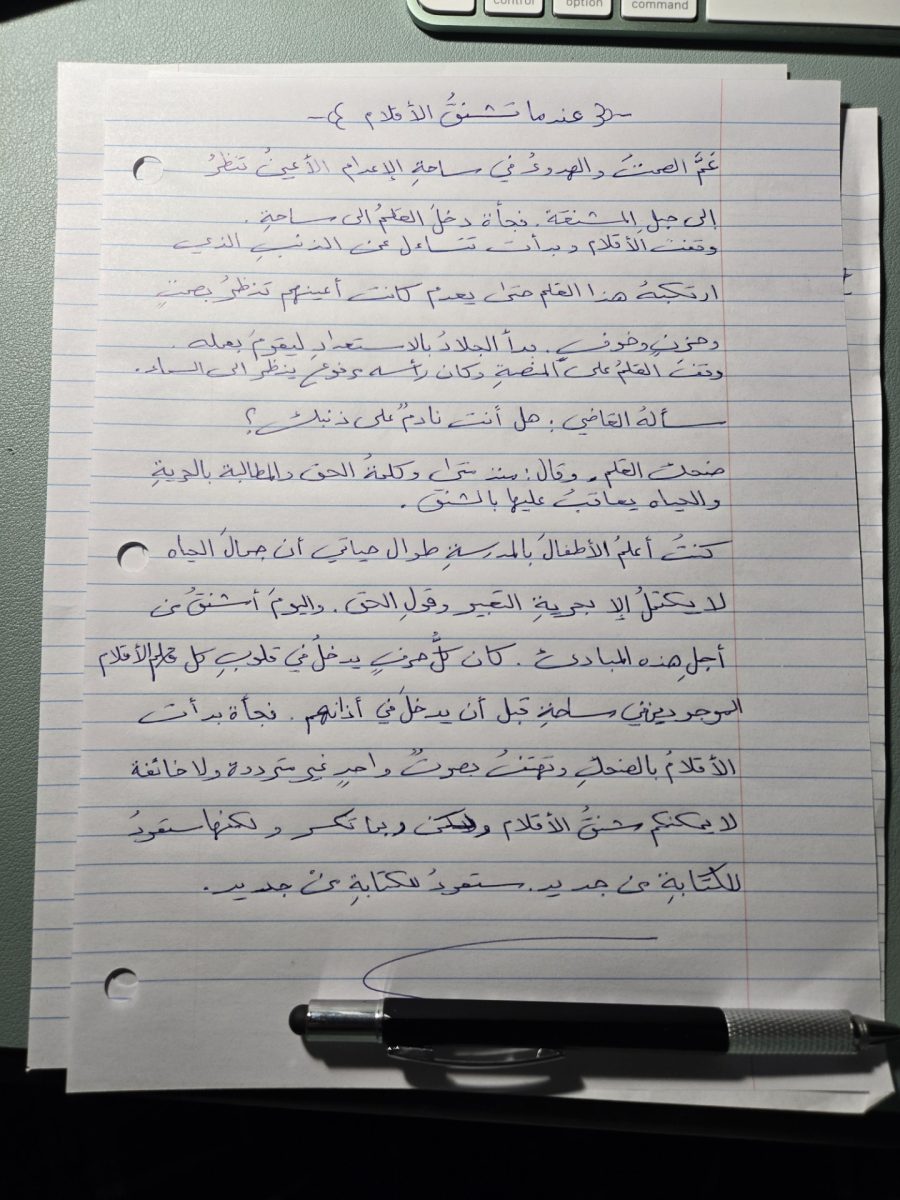 control option command
~{ عندما تشنقُ الأقلام }~
عَمَّ الصمتُ والهدوءُ في ساحةِ الإعدام الأعينُ تنظرُ
إلى حبلِ المشنقة. فجأة دخلَ القلمُ الى ساحةِ.
وقفت الأقلام وبدأت تتساءل عن الذنبِ الذي
ارتكبهُ هذا القلم حتى يعدم كانت أعينهم تنظرُ بصمتٍ
وحزنٍ وخوفٍ. بدأ الجلادُ بالاستعدادِ ليقومَ بعمله.
وقفَ القلمُ على المنصةِ وكان رأسه مرفوع ينظر الى السماء.
سألهُ القاضي: هل أنت نادمٌ على ذنبك؟
ضحك القلم، وقال: منذ متى وكلمةُ الحق والمطالبة بالحريةِ
والحياه يعاقبُ عليها بالشنق.
كنتُ أعلمُ الأطفالَ بالمدرسةِ طوال حياتي أن جمالَ الحياه
لا يكتملُ إلا بحريةِ التعبير وقولِ الحق. واليومَ أشنقُ من
أجلِ هذه المبادئ. كان كلُّ حرفٍ يدخلُ في قلوبِ كل الأقلام
الموجودين في ساحةِ قبل أن يدخلَ في أذانهم. فجأة بدأت
الأقلامُ بالضحكِ وتهتفُ بصوتٌ واحدٍ غير مترددة ولا خائفة
لا يمكنكم شنقُ الأقلام ربما تكسر ولكنها ستعودُ
للكتابةِ من جديد. ستعودُ للكتابةِ منْ جديد.